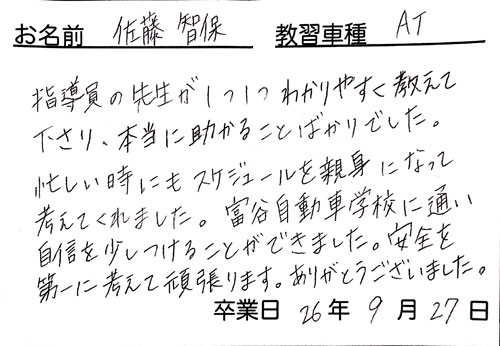 お名前 佐藤 智保 教習車種 AT
指導員の先生が1つ1つわかりやすく教えて
下さり、本当に助かることばかりでした。
忙しい時にもスケジュールを親身になって
考えてくれました。富谷自動車学校に通い
自信を少しつけることができました。安全を
第一に考えて頑張ります。ありがとうございました。
卒業日 26年 9月 27日